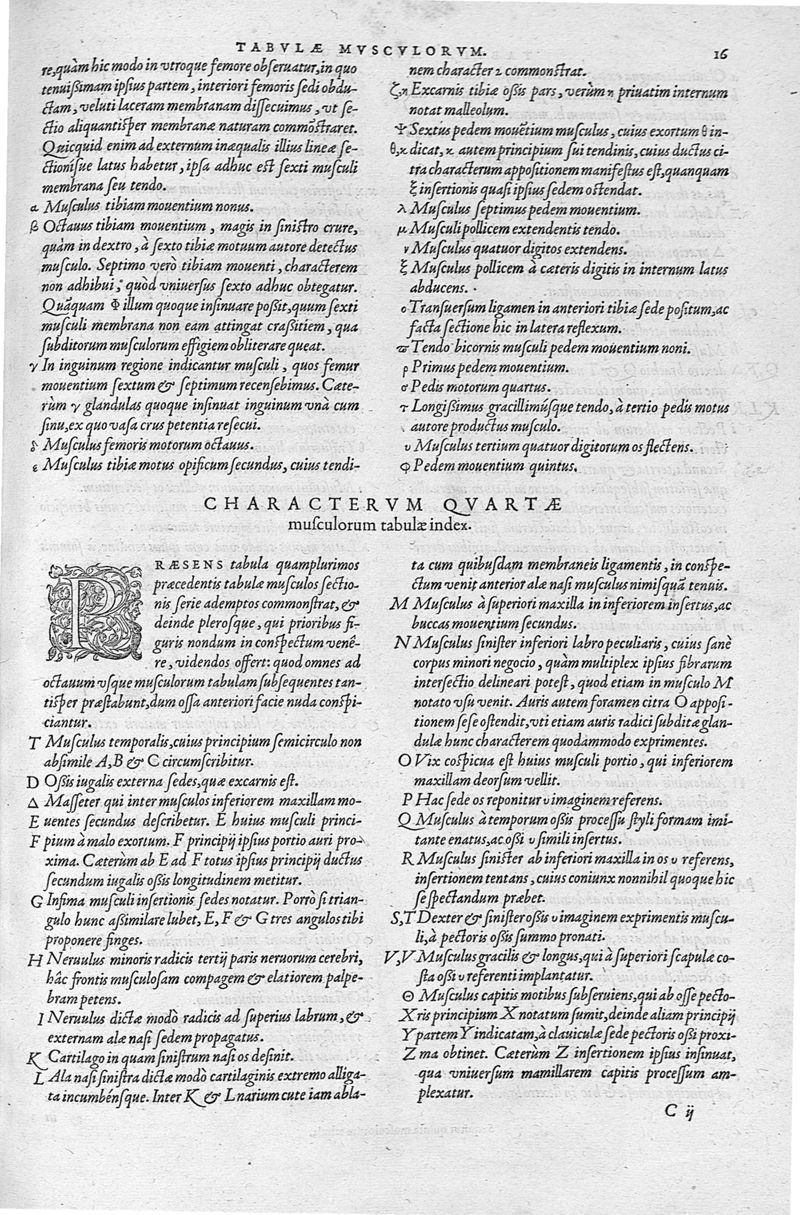 TABVLÆ MVSCVLORVM.
16
re, quàm hic modo in vtroque femore obſeruatur, in quo
tenuißimam ipſius partem, interiori femoris ſedi obdu-
ctam, veluti laceram membranam diſſecuimus, vt ſe-
ctio aliquantiſper membranæ naturam commõſtraret.
Quicquid enim ad externum inæqualis illius lineæ ſe-
ctioniſue latus habetur, ipſa adhuc eſt ſexti muſculi
membrana ſeu tendo.
α Muſculus tibiam mouentium nonus.
β Octauus tibiam mouentium, magis in ſiniſtro crure,
quàm in dextro, à ſexto tibiæ motuum autore detectus
muſculo. Septimo verò tibiam mouenti, characterem
non adhibui, quòd vniuerſus ſexto adhuc obtegatur.
Quãquam Φ illum quoque inſinuare poßit, quum ſexti
muſculi membrana non eam attingat craßitiem, qua
ſubditorum muſculorum effigiem obliterare queat.
γ In inguinum regione indicantur muſculi, quos femur
mouentium ſextum & ſeptimum recenſebimus. Cæte-
rùm γ glandulas quoque inſinuat inguinum vnà cum
ſinu, ex quo vaſa crus petentia reſecui.
δ Muſculus femoris motorum octauus.
ε Muſculus tibiæ motus opificum ſecundus, cuius tendi-
nem character ε commonſtrat.
ζ,η Excarnis tibiæ oßis pars, verùm η priuatim internum
notat malleolum.
Ψ Sextus pedem mouẽtium muſculus, cuius exortum θ in-
θ,κ dicat, κ autem principium ſui tendinis, cuius ductus ci-
tra characterum appoſitionem manifeſtus eſt, quanquam
ξ inſertionis quaſi ipſius ſedem oſtendat.
λ Muſculus ſeptimus pedem mouentium.
μ Muſculi pollicem extendentis tendo.
ν Muſculus quatuor digitos extendens.
ξ Muſculus pollicem à cæteris digitis in internum latus
abducens.
ο Tranſuerſum ligamen in anteriori tibiæ ſede poſitum, ac
facta ſectione hic in latera reflexum.
ϖ Tendo bicornis muſculi pedem mouentium noni.
ρ Primus pedem mouentium.
σ Pedis motorum quartus.
τ Longißimus gracillimúſque tendo, à tertio pedis motus
autore productus muſculo.
υ Muſculus tertium quatuor digitorum os flectens.
φ Pedem mouentium quintus.
CHARACTERVM QVARTÆ
muſculorum tabulæ index.
PRÆSENS tabula quamplurimos
præcedentis tabulæ muſculos ſectio-
nis ſerie ademptos commonſtrat, &
deinde pleroſque, qui prioribus fi-
guris nondum in conſpectum venê-
re, videndos offert: quod omnes ad
octauum vſque muſculorum tabulam ſubſequentes tan-
tiſper præſtabunt, dum oſſa anteriori facie nuda conſpi-
ciantur.
T Muſculus temporalis, cuius principium ſemicirculo non
abſimile A, B & C circumſcribitur.
D Oßis iugalis externa ſedes, quæ excarnis eſt.
Δ Maſſeter qui inter muſculos inferiorem maxillam mo-
E uentes ſecundus deſcribetur. E huius muſculi princi-
F pium à malo exortum. F principij ipſius portio auri pro-
xima. Cæterùm ab E ad F totus ipſius principij ductus
ſecundum iugalis oßis longitudinem metitur.
G Infima muſculi inſertionis ſedes notatur. Porrò ſi trian-
gulo hunc aßimilare lubet, E, F & G tres angulos tibi
proponere finges.
H Neruulus minoris radicis tertij paris neruorum cerebri,
hâc frontis muſculoſam compagem & elatiorem palpe-
bram petens.
I Neruulus dictæ modò radicis ad ſuperius labrum, &
externam alæ naſi ſedem propagatus.
K Cartilago in quam ſiniſtrum naſi os deſinit.
L Ala naſi ſiniſtra dictæ modò cartilaginis extremo alliga-
ta incumbénſque. Inter K & L narium cute iam abla-
ta cum quibuſdam membraneis ligamentis, in conſpe-
ctum venit anterior alæ naſi muſculus nimiſquã tenuis.
M Muſculus à ſuperiori maxilla in inferiorem inſertus, ac
buccas mouentium ſecundus.
N Muſculus ſiniſter inferiori labro peculiaris, cuius ſanè
corpus minori negocio, quàm multiplex ipſius fibrarum
interſectio delineari poteſt, quod etiam in muſculo M
notato vſu venit. Auris autem foramen citra O appoſi-
tionem ſeſe oſtendit, vti etiam auris radici ſubditæ glan-
dulæ hunc characterem quodammodo exprimentes.
O Vix coſpicua eſt huius muſculi portio, qui inferiorem
maxillam deorſum vellit.
P Hac ſede os reponitur υ imaginem referens.
Q Muſculus à temporum oßis proceſſu ſtyli formam imi-
tante enatus, ac oßi υ ſimili inſertus.
R Muſculus ſiniſter ab inferiori maxilla in os υ referens,
inſertionem tentans, cuius coniunx nonnihil quoque hic
ſe ſpectandum præbet.
S,T Dexter & ſiniſter oßis υ imaginem exprimentis muſcu-
li, à pectoris oßis ſummo pronati.
V,V Muſculus gracilis & longus, qui à ſuperiori ſcapulæ co-
ſta oßi υ referenti implantatur.
Θ Muſculus capitis motibus ſubſeruiens, qui ab oſſe pecto-
X ris principium X notatum ſumit, deinde aliam principij
Y partem Y indicatam, à clauiculæ ſede pectoris oßi proxi-
Z ma obtinet. Cæterùm Z inſertionem ipſius inſinuat,
qua vniuerſum mamillarem capitis proceſſum am-
plexatur.
C ij